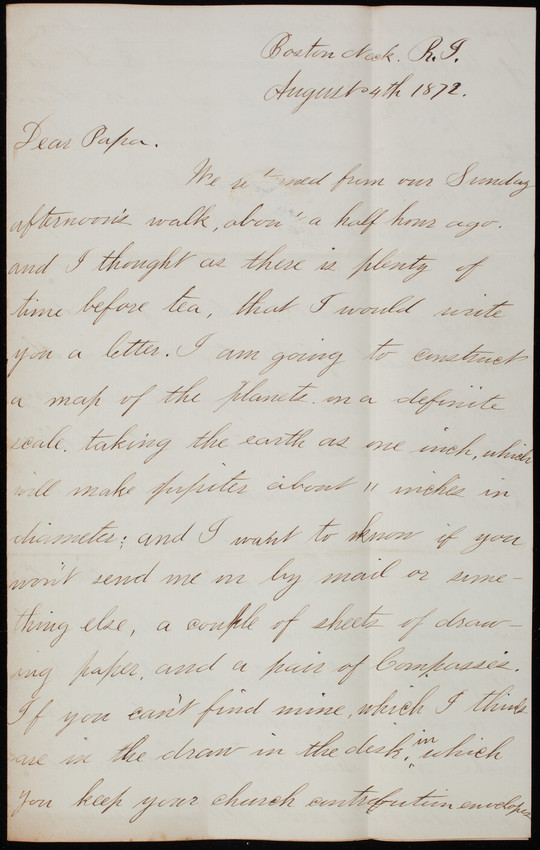 Boston Neck. R.I.
August 4th 1872.
Dear Papa.
We returned from our Sunday
afternoon's walk, about a half hour ago.
and I thought as there is plenty of
time before tea, that I would write
you a letter. I am going to construct
a map of the planets. on a definite
scale. taking the earth as one inch, which
will make Jupiter about 11 inches in
diameter; and I want to know if you
won't send me on by mail or some-
thing else, a couple of sheets of draw-
ing paper, and a pair of Compasses.
If you can't find mine, which I think
are in the draw in the desk, in which
you keep your church contribution envelopes